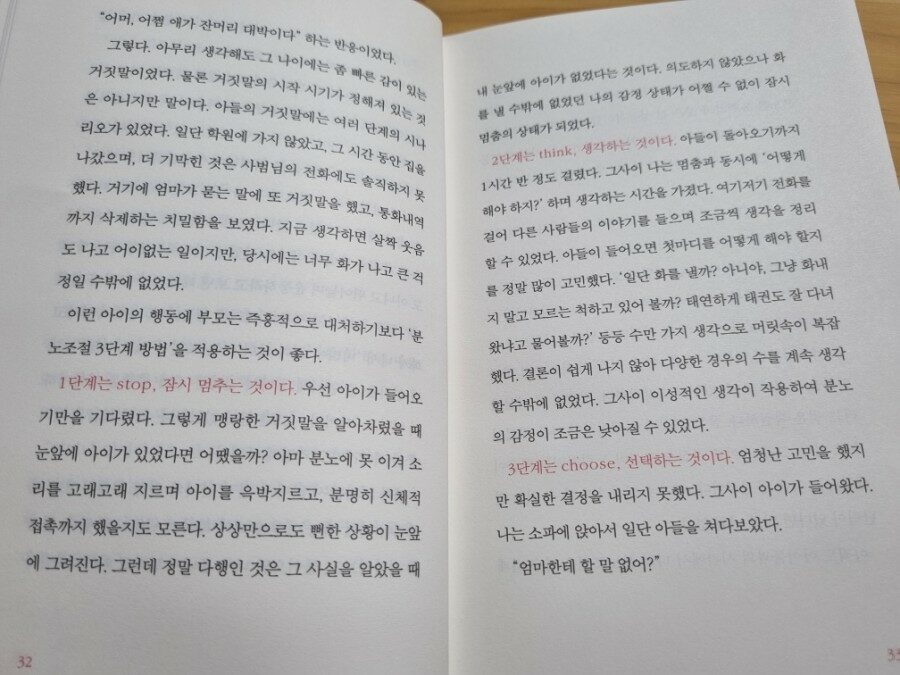 “어머, 어쩜 애가 잔머리 대박이다” 하는 반응이었다.
그렇다. 아무리 생각해도 그 나이에는 좀 빠른 감이 있는
거짓말이었다. 물론 거짓말의 시작 시기가 정해져 있는 것
은 아니지만 말이다. 아들의 거짓말에는 여러 단계의 시나
리오가 있었다. 일단 학원에 가지 않았고, 그 시간 동안 집을
나갔으며, 더 기막힌 것은 사범님의 전화에도 솔직하지 못
했다. 거기에 엄마가 묻는 말에 또 거짓말을 했고, 통화내역
까지 삭제하는 치밀함을 보였다. 지금 생각하면 살짝 웃음
도 나고 어이없는 일이지만, 당시에는 너무 화가 나고 큰 걱
정일 수밖에 없었다.
이런 아이의 행동에 부모는 즉흥적으로 대처하기보다 ‘분
노조절 3단계 방법’을 적용하는 것이 좋다.
1단계는 stop, 잠시 멈추는 것이다. 우선 아이가 들어오
기만을 기다렸다. 그렇게 맹랑한 거짓말을 알아차렸을 때
눈앞에 아이가 있었다면 어땠을까? 아마 분노에 못 이겨 소
리를 고래고래 지르며 아이를 윽박지르고, 분명히 신체적
접촉까지 했을지도 모른다. 상상만으로도 뻔한 상황이 눈앞
에 그려진다. 그런데 정말 다행인 것은 그 사실을 알았을 때
32
내 눈앞에 아이가 없었다는 것이다. 의도하지 않았으나 화
를 낼 수밖에 없었던 나의 감정 상태가 어쩔 수 없이 잠시
멈춤의 상태가 되었다.
2단계는 think, 생각하는 것이다. 아들이 돌아오기까지
1시간 반 정도 걸렸다. 그사이 나는 멈춤과 동시에 ‘어떻게
해야 하지?’ 하며 생각하는 시간을 가졌다. 여기저기 전화를
걸어 다른 사람들의 이야기를 들으며 조금씩 생각을 정리
할 수 있었다. 아들이 들어오면 첫마디를 어떻게 해야 할지
를 정말 많이 고민했다. ‘일단 화를 낼까? 아니야, 그냥 화내
지 말고 모르는 척하고 있어 볼까? 태연하게 태권도 잘 다녀
왔냐고 물어볼까?’ 등등 수만 가지 생각으로 머릿속이 복잡
했다. 결론이 쉽게 나지 않아 다양한 경우의 수를 계속 생각
할 수밖에 없었다. 그사이 이성적인 생각이 작용하여 분노
의 감정이 조금은 낮아질 수 있었다.
3단계는 choose, 선택하는 것이다. 엄청난 고민을 했지
만 확실한 결정을 내리지 못했다. 그사이 아이가 들어왔다.
나는 소파에 앉아서 일단 아들을 쳐다보았다.
“엄마한테 할 말 없어?”
33